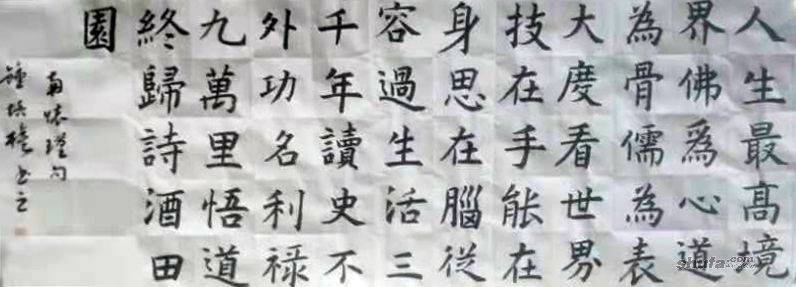 人生最高境
界佛爲心道
為骨儒為表
大度看世界
技在手能在
身思在腦從
容過生活三
千年讀史不
外功名利祿
九萬里悟道
終歸詩酒田
園
南懷瑾句
書之